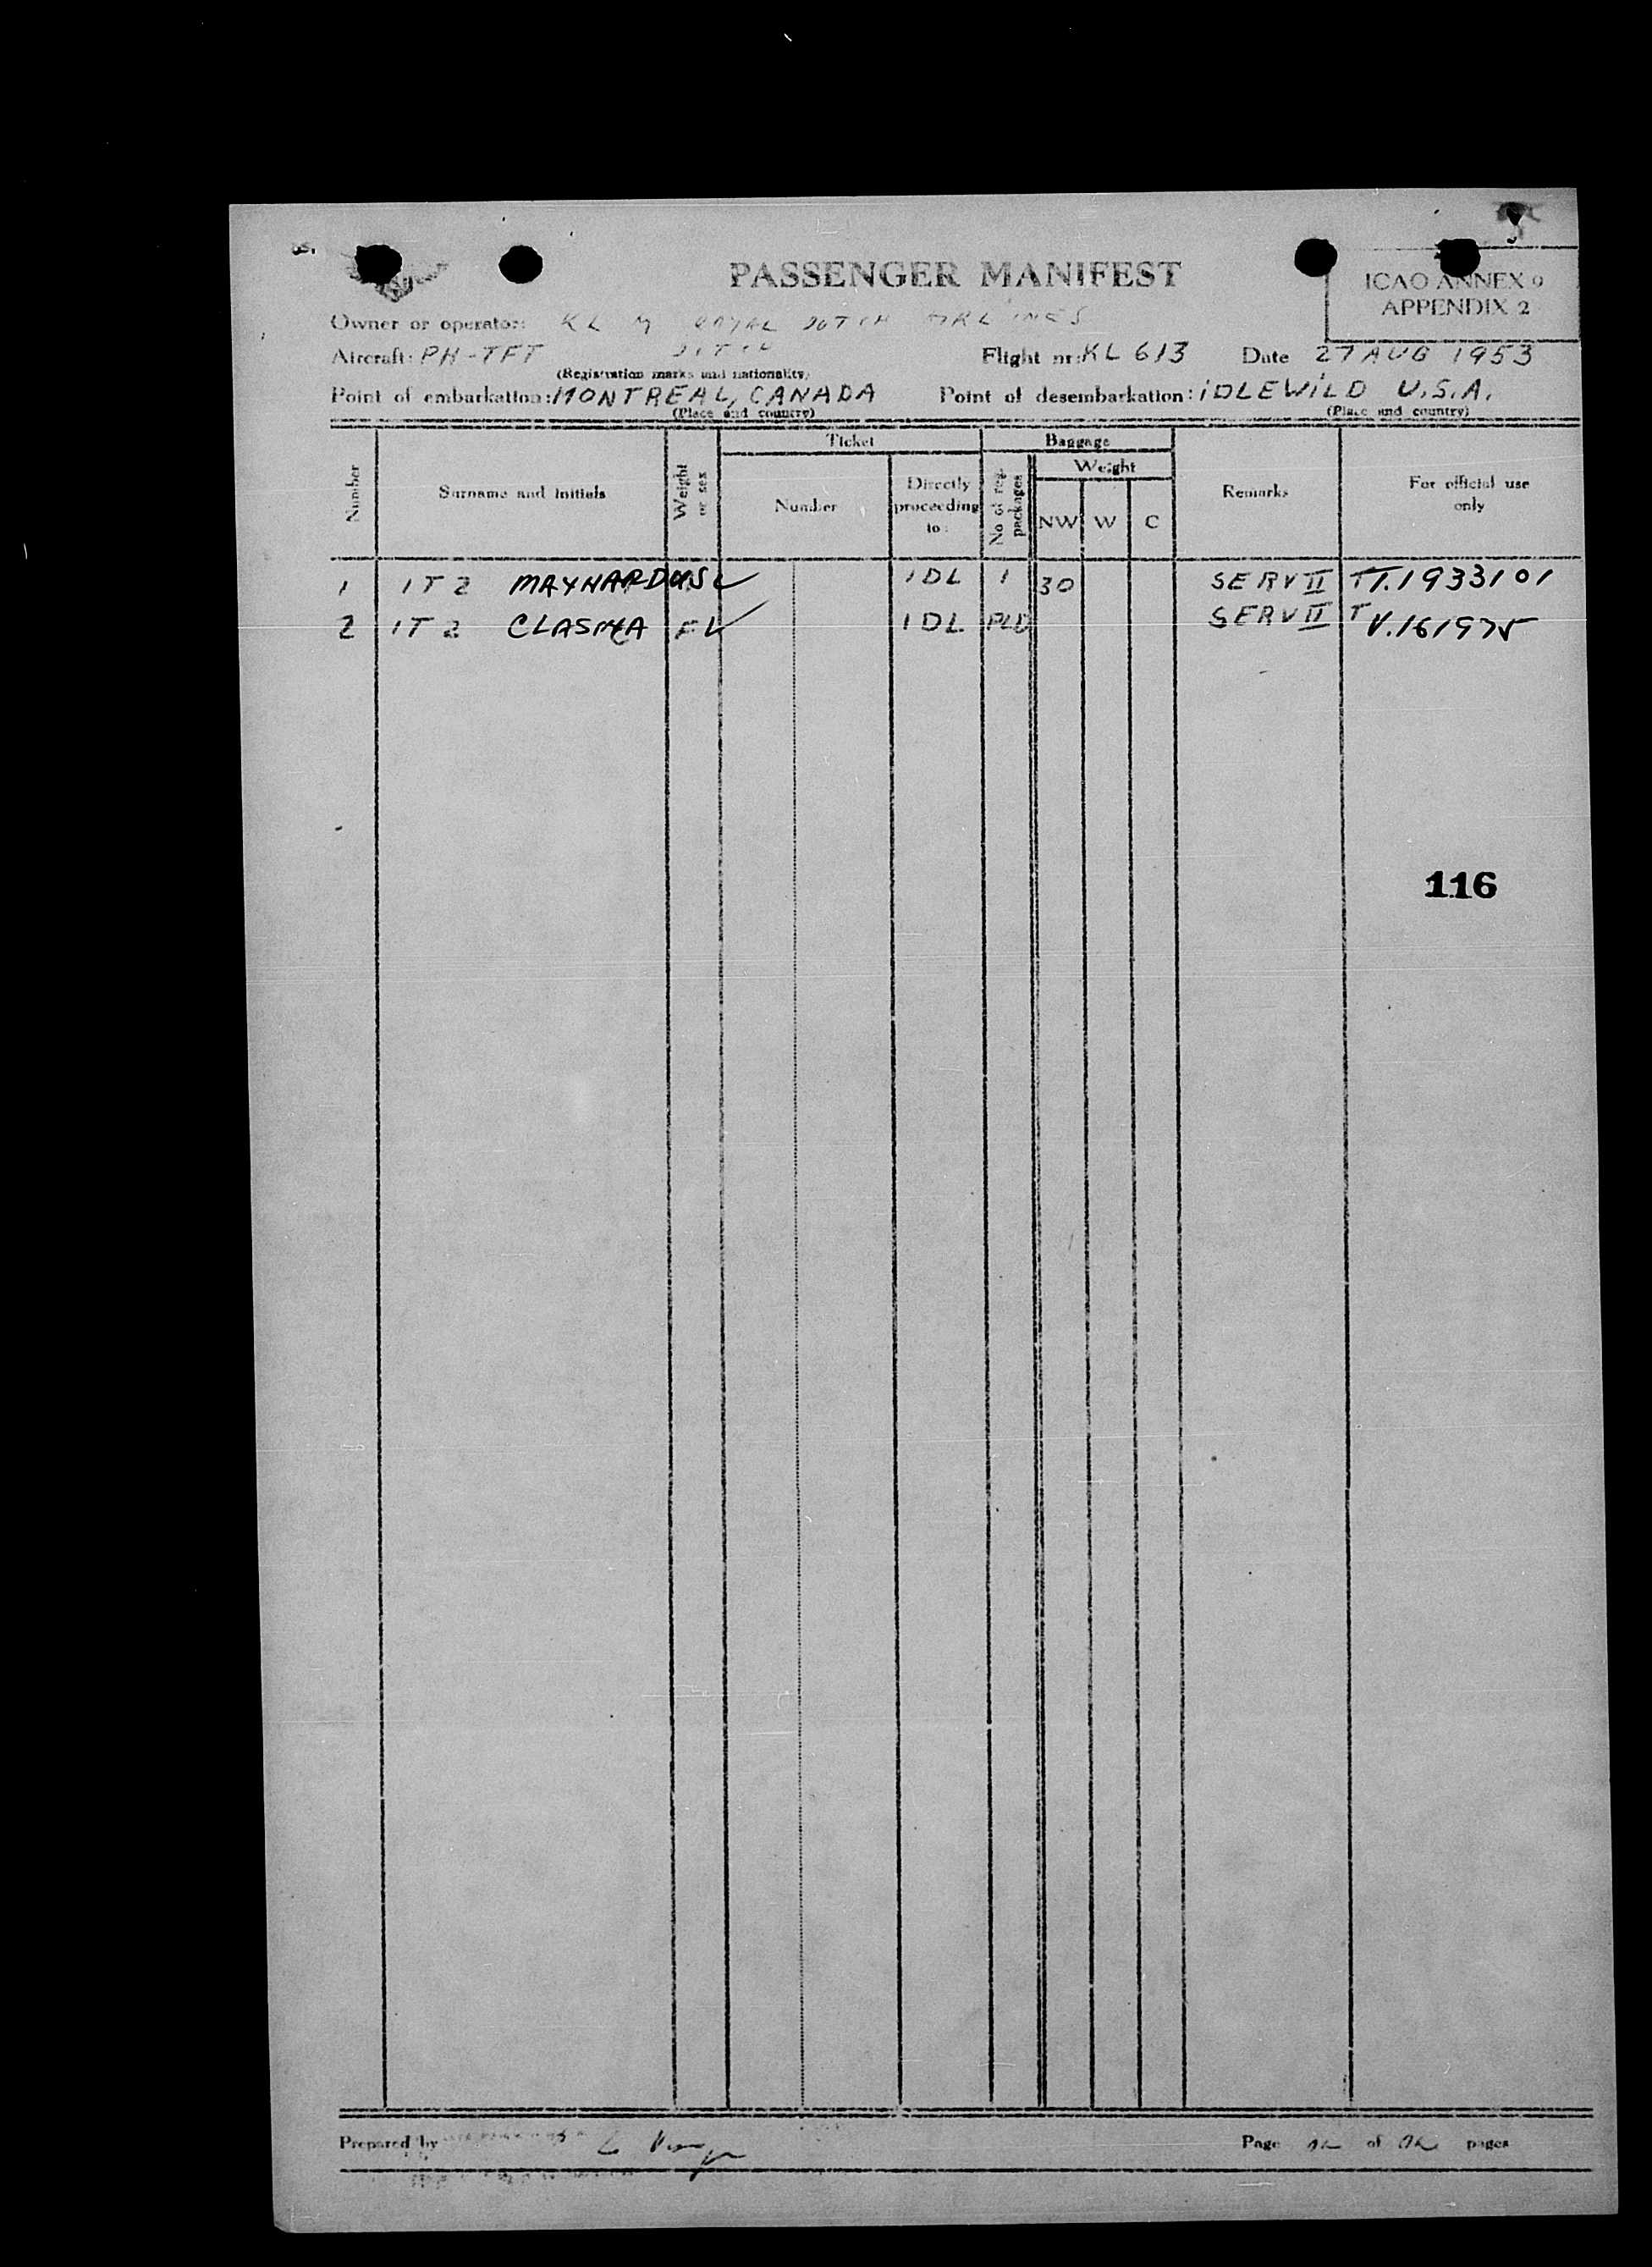 PASSENGER MANIFEST
ICAO ANNEX 9
APPENDIX 2
Owner or operator: KLM ROYAL DUTCH AIRLINES
Aircraft: PH-TFT DUTCH Flight nr: KL 613 Date 27 AUG 1953
(Registration marks and nationality)
Point of embarkation: MONTREAL, CANADA Point of desembarkation: IDLEWILD U.S.A.
(Place and country) (Place and country)
Ticket Baggage
Number Surname and initials Weight or sex Number Directly proceeding to: No of reg. packages Weight NW W C Remarks For official use only
1 1T2 MAYNARDUS IDL 1 30 SERV II T T.1933101
2 1T2 CLASMA F IDL PLD SERV II T V.161975
116
Prepared by
Page of pages